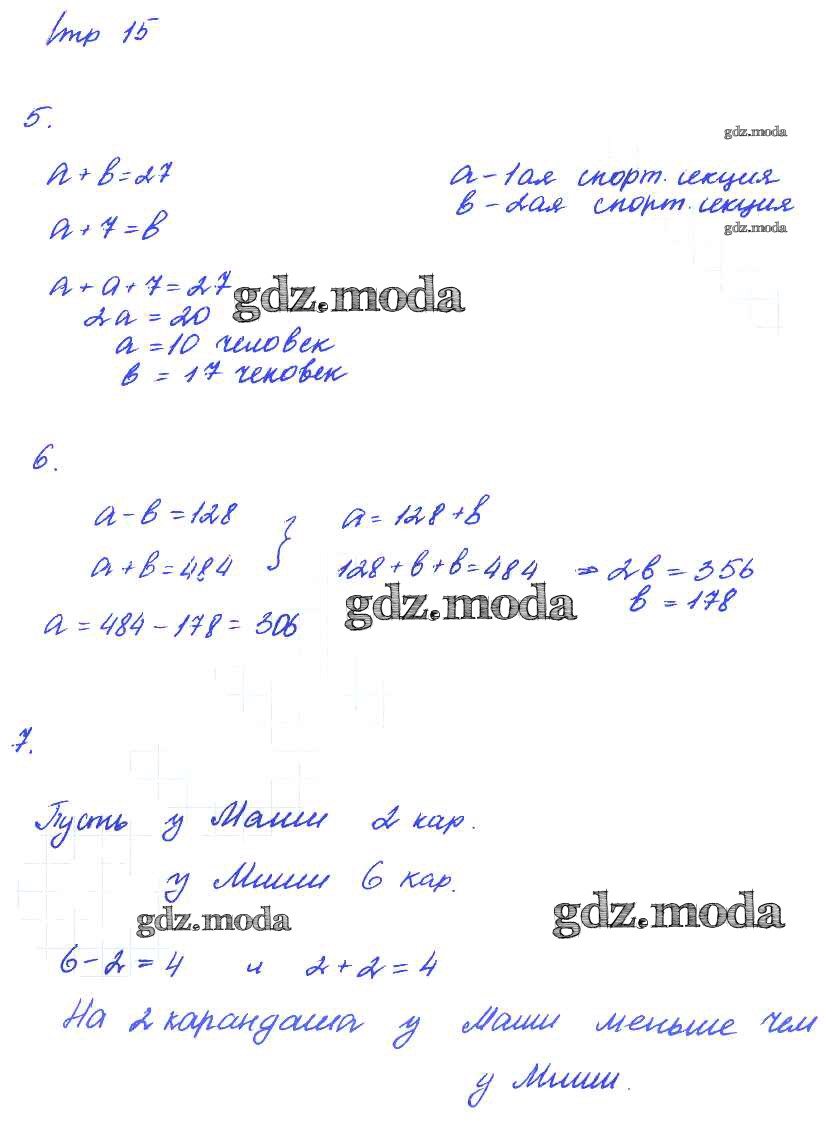 Стр 15
5.
gdz.moda
a + b = 27
a - 1ая спорт. секция
b - 2ая спорт. секция
a + 7 = b
gdz.moda
a + a + 7 = 27
gdz.moda
2a = 20
a = 10 человек
b = 17 человек
6.
a - b = 128 } a = 128 + b
a + b = 484 128 + b + b = 484 ⇒ 2b = 356
gdz.moda
b = 178
a = 484 - 178 = 306
7.
Пусть у Маши 2 кар.
у Миши 6 кар.
gdz.moda
gdz.moda
6 - 2 = 4 и 2 + 2 = 4
На 2 карандаша у Маши меньше чем
у Миши.